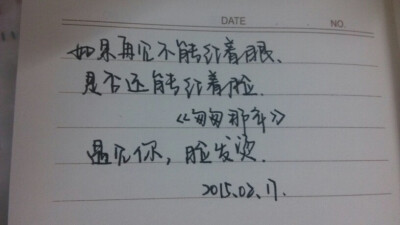 DATE NO.
如果再见不能红着眼、
是否还能红着脸.
《匆匆那年》
遇见你，脸发烫.
2015.02.17.